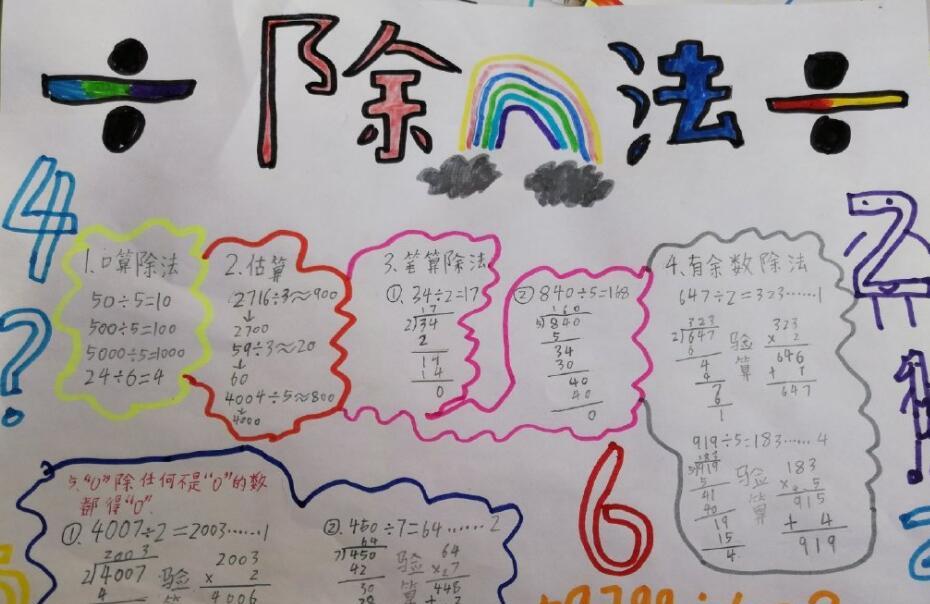 ÷ 除法 ÷
4
2
?
1.口算除法
50÷5=10
500÷5=100
5000÷5=1000
24÷6=4
2.估算
2716÷3≈900
↓
2700
59÷3≈20
↓
60
4004÷5≈800
↓
4000
3.笔算除法
①.34÷2=17
17
2)34
2
14
14
0
②840÷5=168
160
5)840
5
34
30
40
40
0
4.有余数除法
647÷2=323……1
323
2)647
6
4
4
1
验算
323
× 2
646
+ 1
647
919÷5=183……4
183
5)919
5
41
40
19
15
4
验算
183
× 5
915
+ 4
919
6
5."0"除任何不是"0"的数
都得"0".
①.4007÷2=2003……1
2003
2)4007
4
验算
2003
× 2
4006
②.450÷7=64……2
64
7)450
42
30
28
验算
64
×7
448